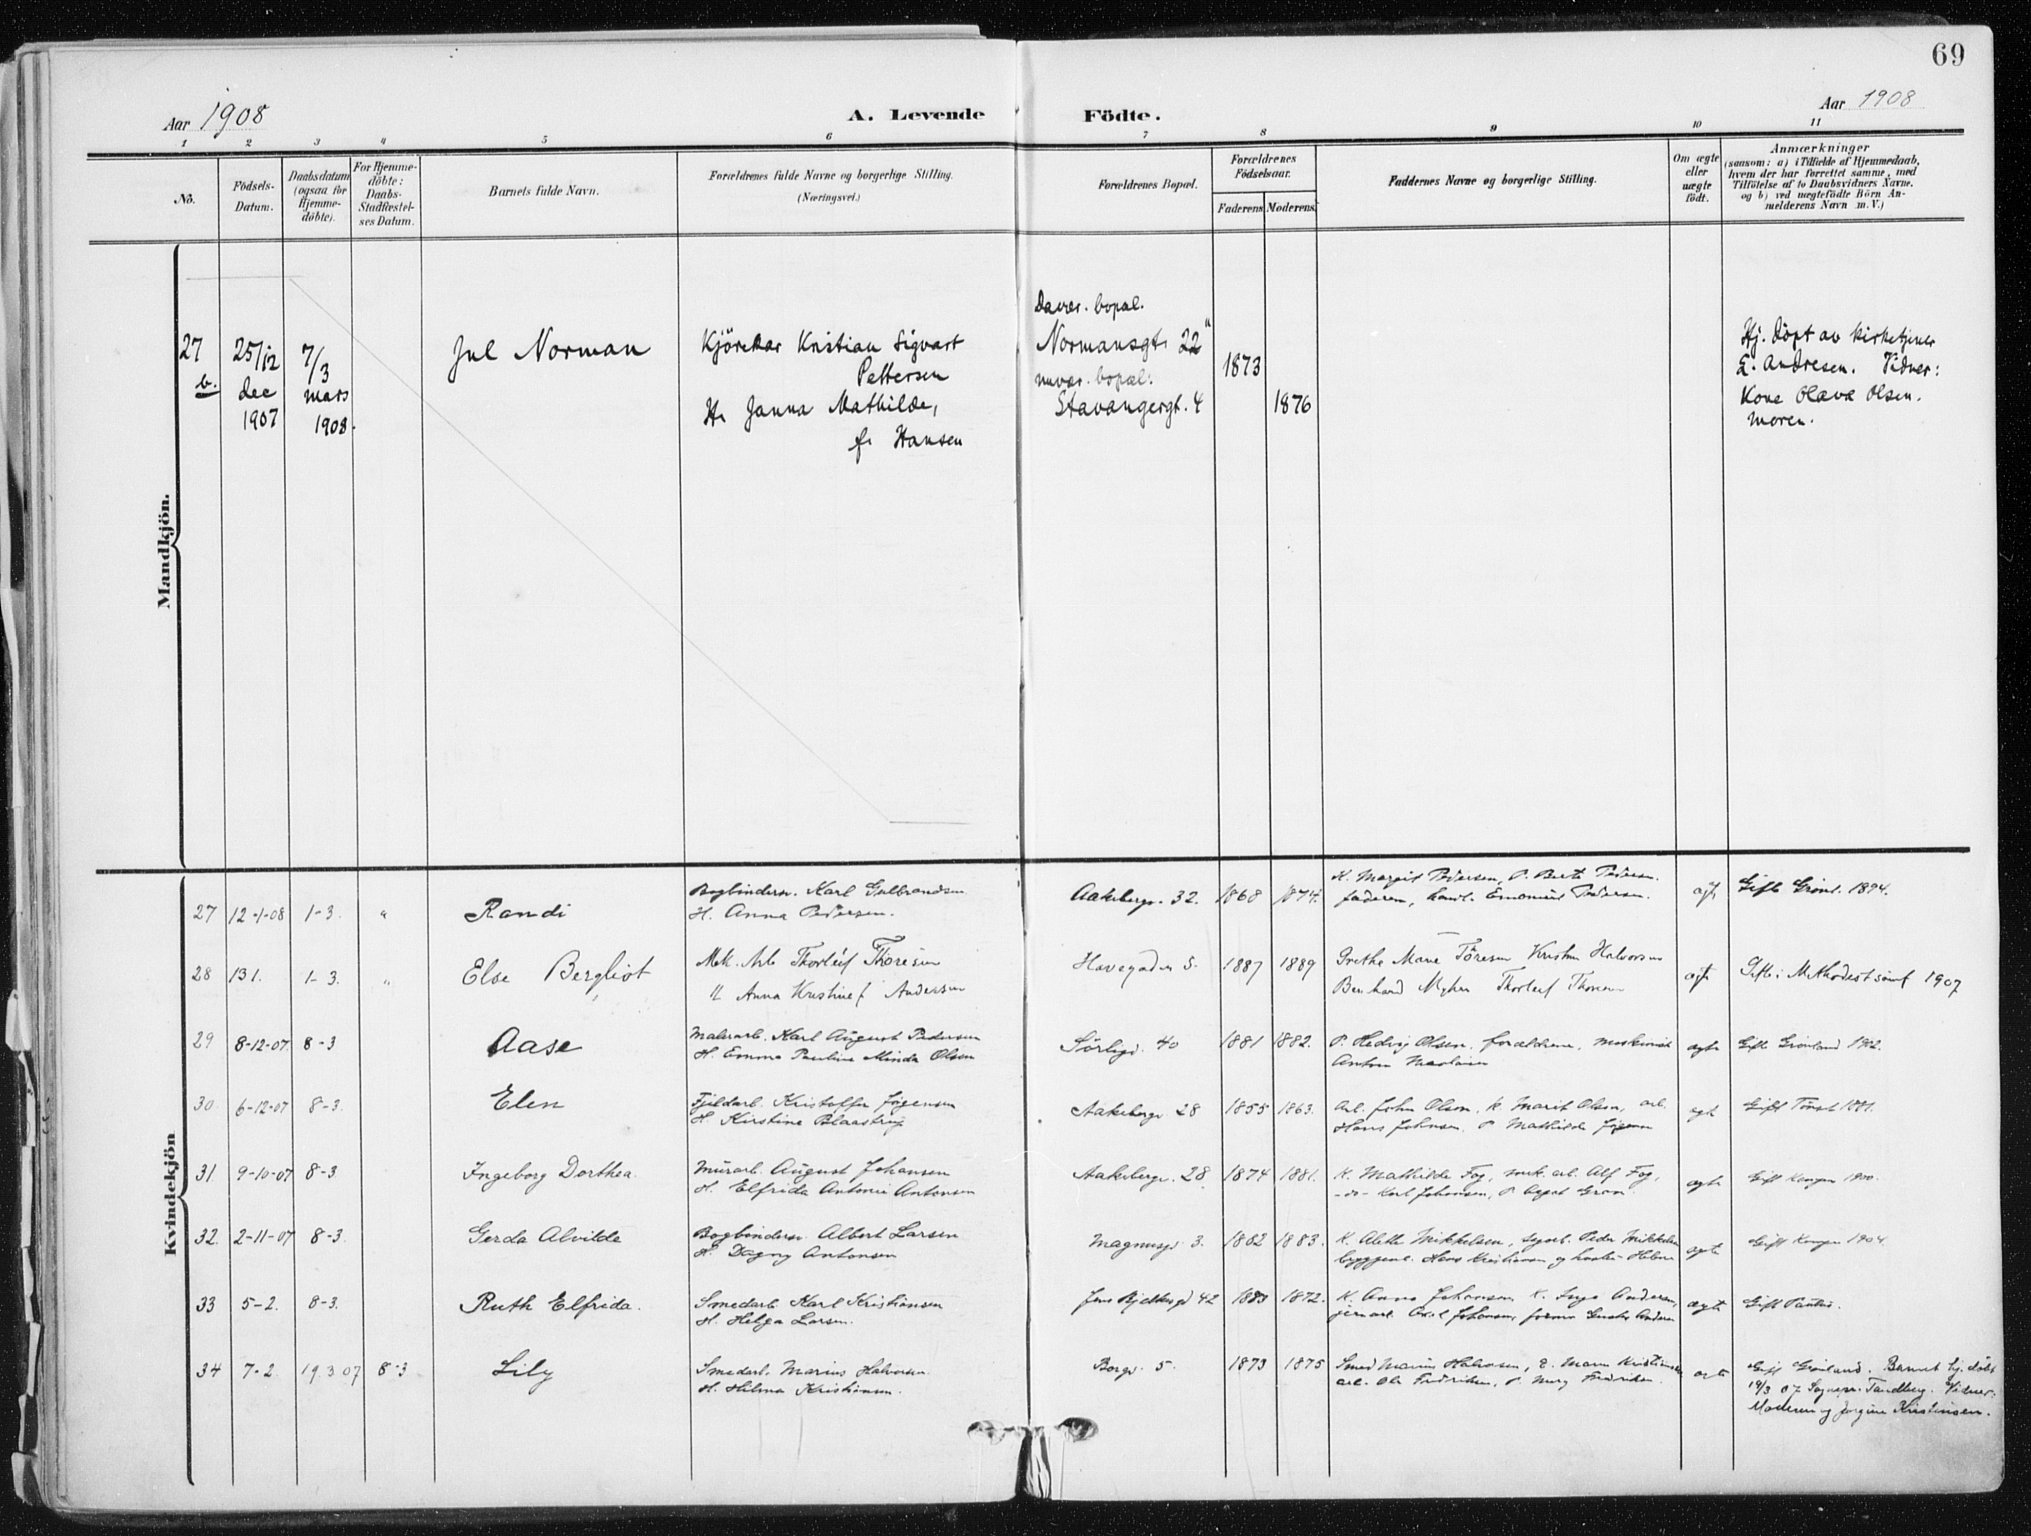 69
Aar 1908
A. Levende Födte.
Aar 1908
1 2 3 4 5 6 7 8 9 10 11
No.
Födsels-Datum.
Daabsdatum (ogsaa for Hjemme-döbte).
For Hjemme-döbte: Daabs-Stadfestel-ses Datum.
Barnets fulde Navn.
Forældrenes fulde Navne og borgerlige Stilling. (Næringsvei.)
Forældrenes Bopæl.
Forældrenes Födselsaar.
Faderens Moderens.
Faddernes Navne og borgerlige Stilling.
Om ægte eller uægte födt.
Anmærkninger
(saasom: a) i Tilfælde af Hjemmedaab,
hvem der har forrettet samme, med
Tilföielse af to Daabsvidners Navne.
og b) ved uægtefödte Börn An-
melderens Navn m. V.)
Mandkjön.
27 b. 25/12 dec 1907 7/3 mars 1908.
Jul Norman
Kjörekar Kristian Sigvart
Pettersen
H. Janna Mathilde,
f. Hansen
Davær. bopæl.
Normansgt. 22
nuvær. bopæl:
Stavangergt. 4
1873 1876
Hj. döpt av kirketjener
E. Andresen. Vidner:
Kone Olava Olsen.
moren.
Kvindekjön
27 12-1-08 1-3. "
Randi
Bogbinders. Karl Gulbrandsen
H. Anna Pedersen.
Aakebergv. 32. 1868 1874.
K. Margit Pedersen, P. Berte Pedersen.
faderen, handl. Emanuel Pedersen.
Gift Grønl. 1894.
28 131. 1-3. "
Else Bergliot
Mek. Arb Thorleif Thoresen
H Anna Kristine f Andersen
Havegaden 5. 1887 1889
Grethe Marie Töresen Kristian Halvorsen
Bernhard Myhre Thorleif Thoresen
Gift i Methodestsamf 1907
29 8-12-07 8-3
Aase
Malerarb. Karl August Pedersen
H. Emma Pauline Minda Olsen
Sörligt. 40 1881 1882.
P. Hedvig Olsen, forældrene, maskinist
Anton
ægte Gift Grønland 1902.
30 6-12-07 8-3.
Elen
Fjeldarb. Kristoffer Jörgensen
H. Kirstine Blaastrup
Aakebergv 28 1855 1863.
Arb. John Olsen, K. Marit Olsen, arb.
Hans Johnsen, P. Mathilde
ægte Gift
31 9-10-07 8-3
Ingeborg Dorthea.
Murarb. August Johansen
H. Elfrida Antonie Antonsen
Aakebergv. 28 1874 1881.
K. Mathilde Fog, mek. arb. Alf Fog,
-do- Karl Johansen, P. Aagot Gram.
ægte Gift Kampen 1900.
32. 2-11-07 8-3.
Gerda Alvilde
Bogbinders Albert Larsen
H. Dagny Antonsen
Magnusgt 3. 1882 1883.
K. Alette Mikkelsen, Peder Mikkelsen
byggm. Hans Kristiansen og hustru Helene
ægte Gift Kampen 1904.
33 5-2. 8-3.
Ruth Elfrida.
Smedarb Karl Kristiansen
H. Helga Larsen.
Jens Bjelkesgt 42 1883 1872.
K. Anna Johansen K. Inga Andersen,
jernarb. Axel Johansen, former Gustav Andersen
ægte Gift Paulus.
34 7-2. 19.3 07 8-3
Lily
Smedarb. Marius Halvorsen.
H. Hilma Kristiansen.
Borgt. 5. 1873 1875
Smed Marius Halvorsen, E. Maren Kristiansen
arb. Ole Fredriksen, P. Fredriksen.
Gift Grønland. Barnet hj. döbt
19/3 07 Sognepr. Tandberg. Vidner:
Moderen og Jorgine Kristiansen.